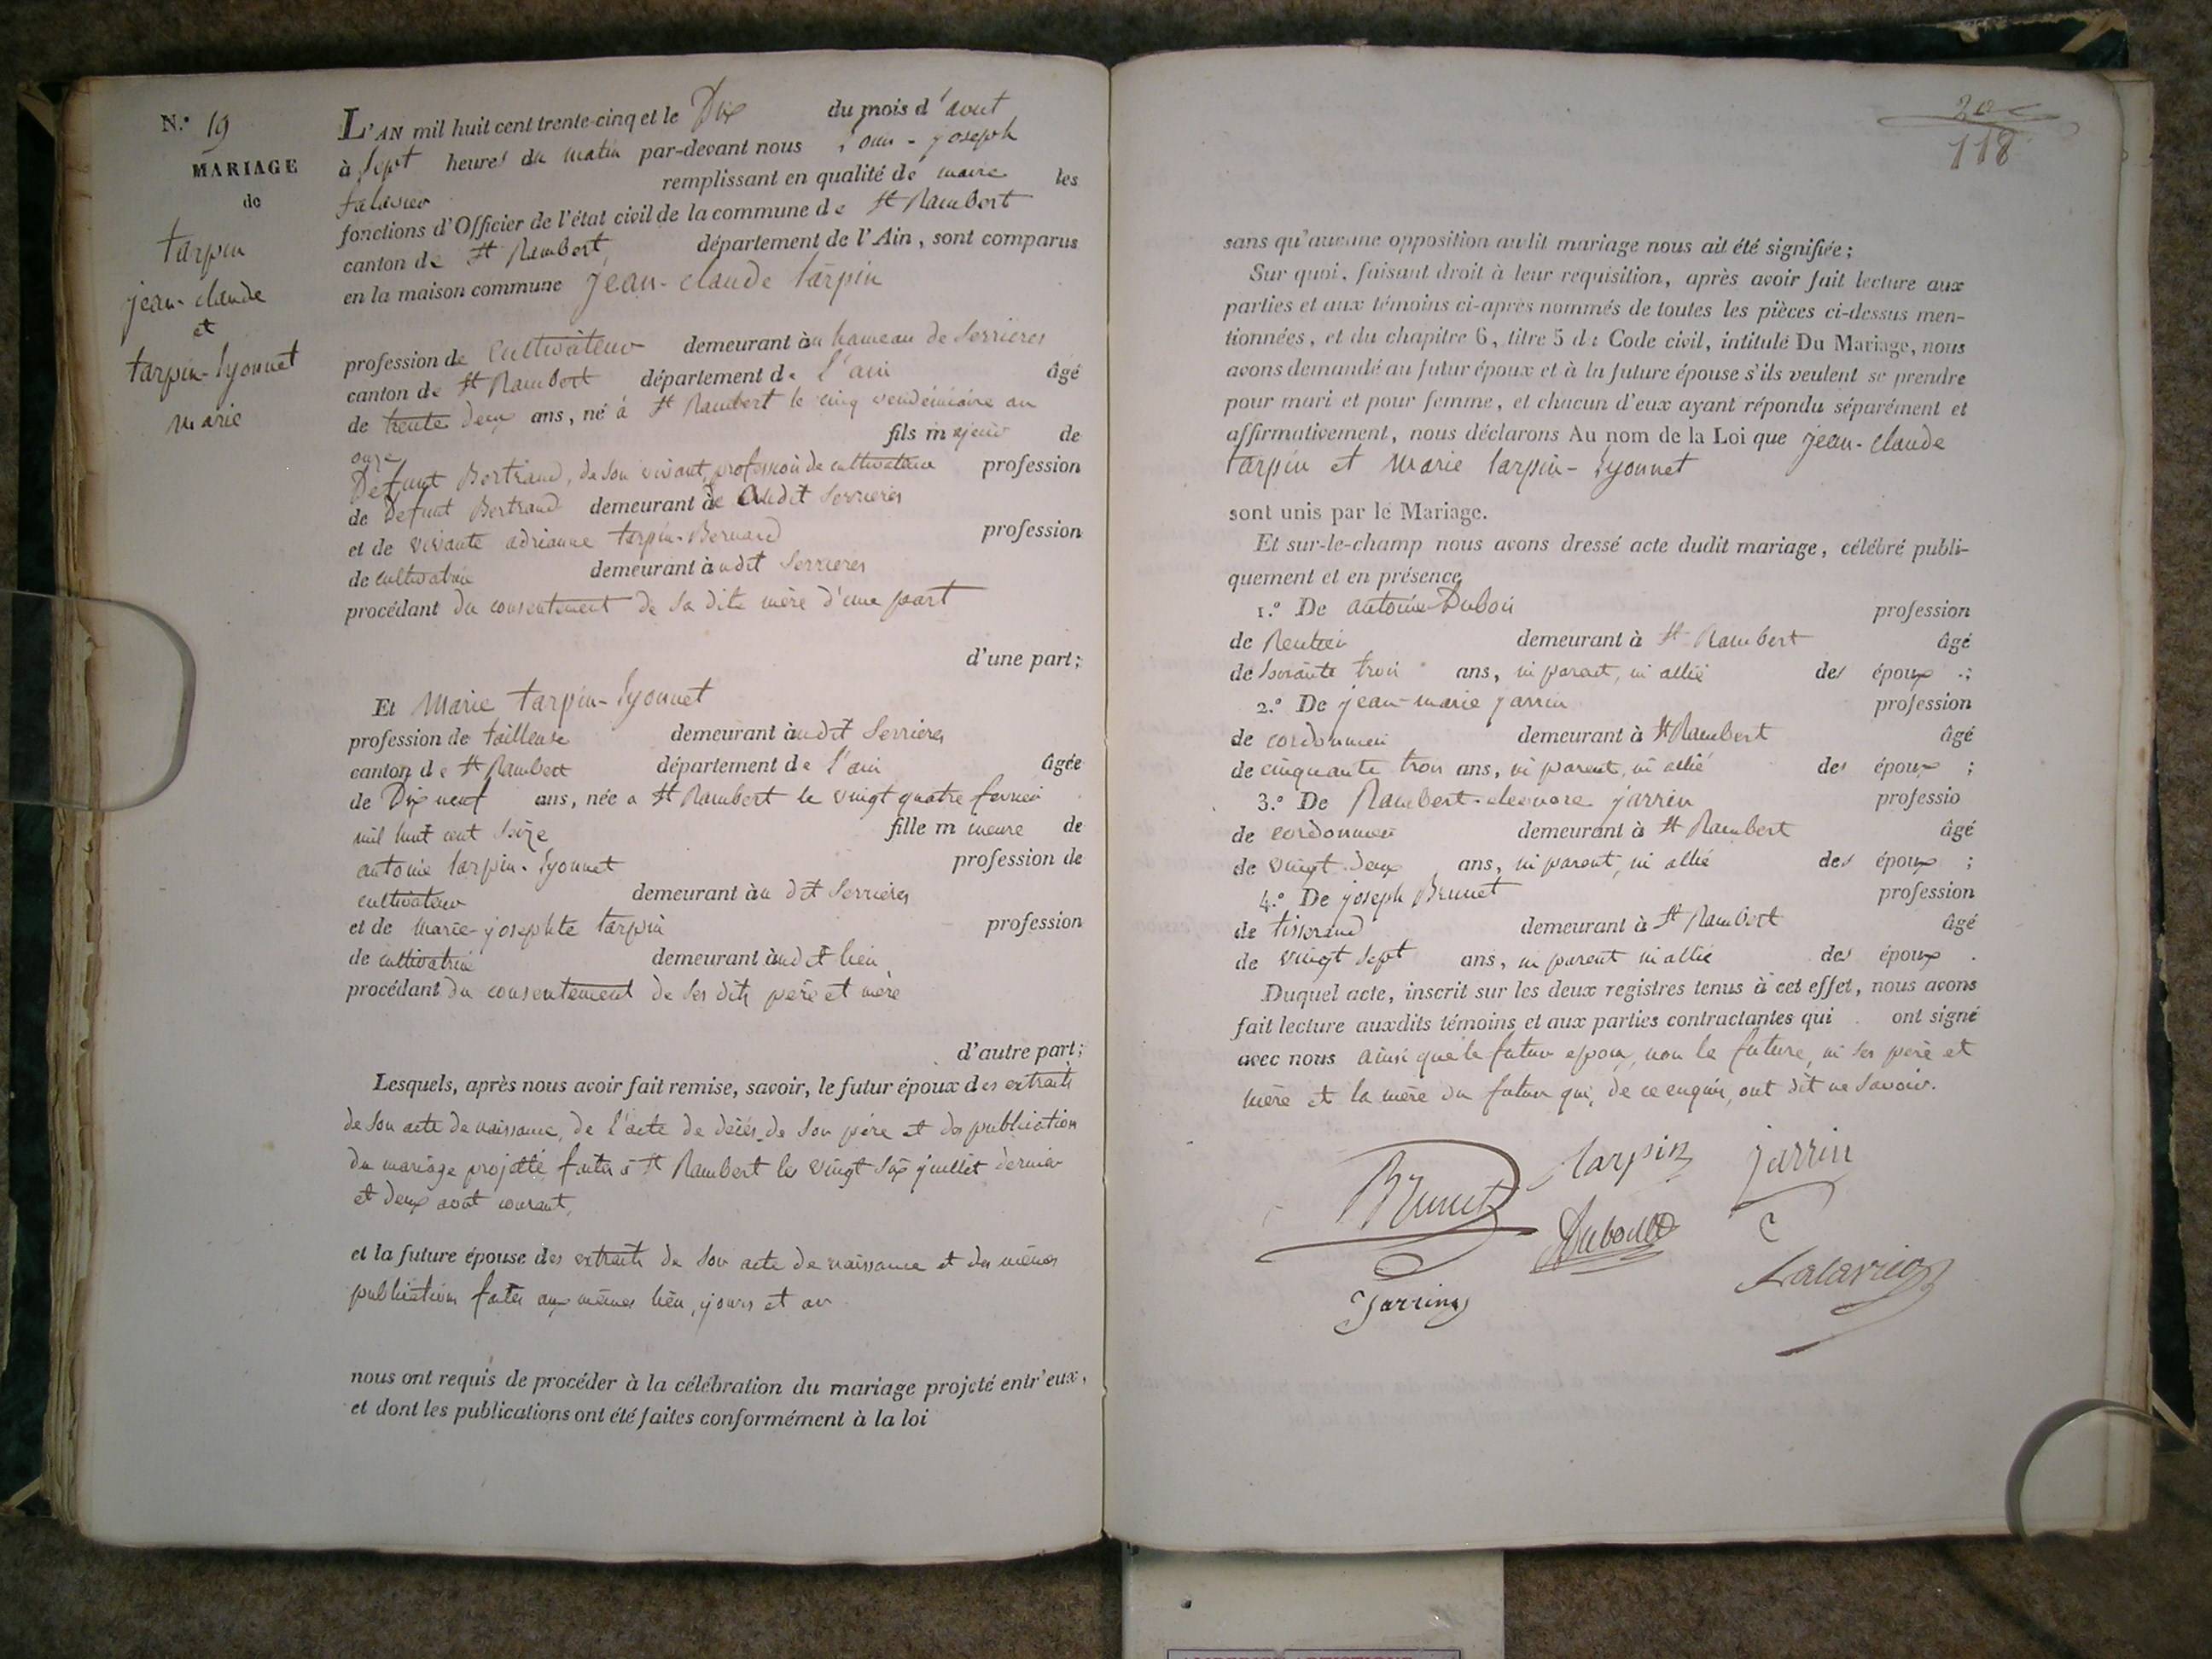 N.° 19
MARIAGE
de
tarpin
jean-claude
et
tarpin-lyonnet
marie
L'AN mil huit cent trente-cinq et le Dix du mois d'aout
à Sept heures du matin par-devant nous Louis-joseph
remplissant en qualité de maire les
fonctions d'Officier de l'état civil de la commune de St Rambert
canton de St Rambert, département de l'Ain, sont comparus
en la maison commune jean-claude tarpin
profession de Cultivateur demeurant au hameau de Serrieres
canton de St Rambert département de l'ain âgé
de trente deux ans, né à St Rambert le cinq vendémiaire an
onze fils majeur de
Defunt Bertrand, de son vivant, profession de cultivateur profession
de Defunt Bertrand demeurant à audit Serrieres
et de vivante adrianne tarpin-Bernard profession
de cultivatrice demeurant audit Serrieres
procédant du consentement de sa dite mère d'une part
d'une part;
Et Marie tarpin-lyonnet
profession de tailleuse demeurant audit Serrieres
canton de St Rambert département de l'ain âgée
de Dix neuf ans, née a St Rambert le vingt quatre fevrier
mil huit cent Seize fille mineure de
antoine tarpin-lyonnet profession de
cultivateur demeurant au dit Serrieres
et de marie-josephte tarpin profession
de cultivatrice demeurant audit lieu
procédant du consentement de ses dits père et mère
d'autre part;
Lesquels, après nous avoir fait remise, savoir, le futur époux des extraits
de son acte de naissance, de l'acte de décès de son père et des publication
du mariage projetté faites à St Rambert les vingt six juillet dernier
et deux août courant,
et la future épouse des extraits de son acte de naissance et des mêmes
publications faites aux mêmes lieu, jours et an
nous ont requis de procéder à la célébration du mariage projeté entr'eux,
et dont les publications ont été faites conformément à la loi
20
118
sans qu'aucune opposition audit mariage nous ait été signifiée;
Sur quoi, faisant droit à leur réquisition, après avoir fait lecture aux
parties et aux témoins ci-après nommés de toutes les pièces ci-dessus men-
tionnées, et du chapitre 6, titre 5 du Code civil, intitulé Du Mariage, nous
avons demandé au futur époux et à la future épouse s'ils veulent se prendre
pour mari et pour femme, et chacun d'eux ayant répondu séparément et
affirmativement, nous déclarons Au nom de la Loi que jean-claude
tarpin et Marie tarpin-lyonnet
sont unis par le Mariage.
Et sur-le-champ nous avons dressé acte dudit mariage, célébré publi-
quement et en présence
1.° De antoine Dubois profession
de Rentier demeurant à St Rambert âgé
de soixante trois ans, ni parent, ni allié des époux ;
2.° De jean-marie jarrin profession
de cordonnier demeurant à St Rambert âgé
de cinquante trois ans, ni parent, ni allié des époux ;
3.° De Rambert-eleonore jarrin professio
de cordonnier demeurant à St Rambert âgé
de vingt deux ans, ni parent, ni allié des époux ;
4.° De joseph Brunet profession
de tisserand demeurant à St Rambert âgé
de vingt sept ans, ni parent ni allié des époux .
Duquel acte, inscrit sur les deux registres tenus à cet effet, nous avons
fait lecture auxdits témoins et aux parties contractantes qui ont signé
avec nous ainsi que le futur epoux, non la future, ni ses père et
mère et la mère du futur qui, de ce enquis, ont dit ne savoir.
Tarpin jarrin
Brunet
Jarrin